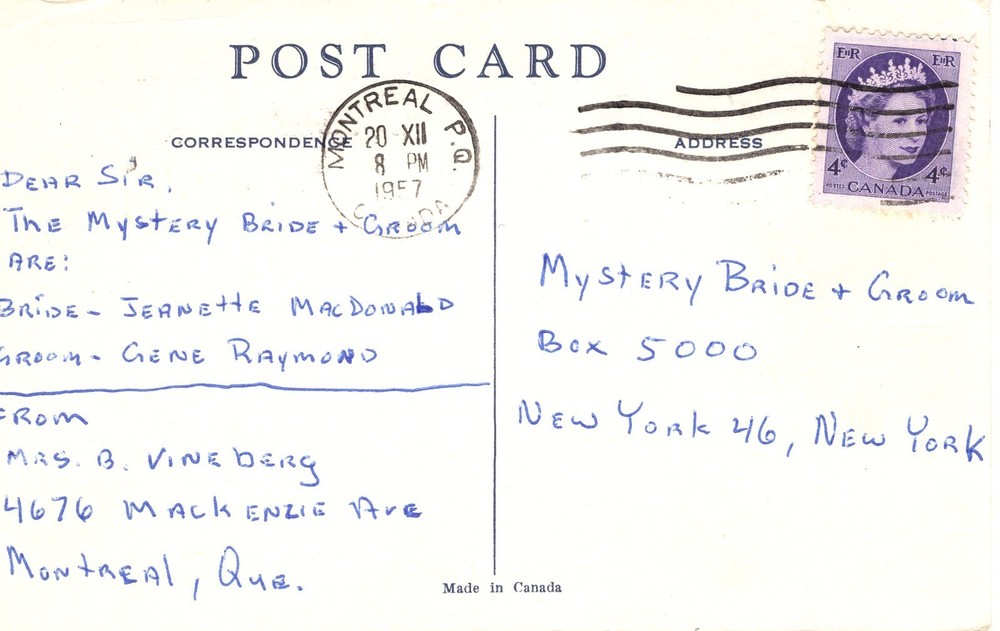 POST CARD
CORRESPONDENCE
MONTREAL P.Q.
20 XII
8 PM
1957
CANADA
ADDRESS
EIIR EIIR
4¢ 4¢
POSTES CANADA POSTAGE
DEAR SIR,
THE MYSTERY BRIDE + GROOM
ARE:
BRIDE - JEANETTE MACDONALD
GROOM - GENE RAYMOND
FROM
MRS. B. VINEBERG
4676 MACKENZIE AVE
MONTREAL, QUE.
MYSTERY BRIDE + GROOM
BOX 5000
NEW YORK 46, NEW YORK
Made in Canada